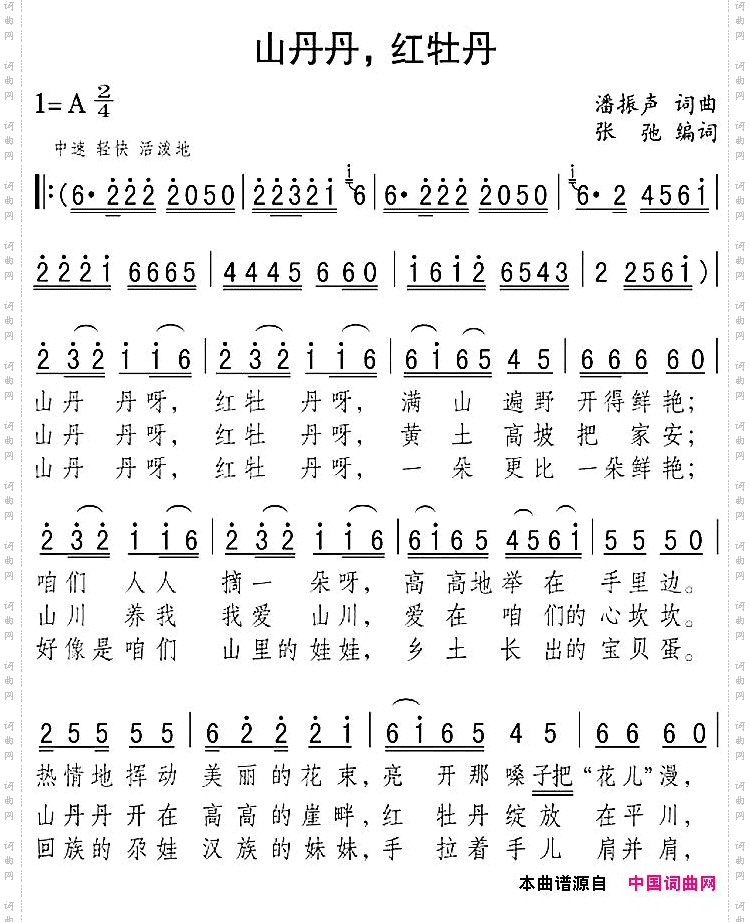 山丹丹，红牡丹
1=A 2/4
潘振声 词曲
张 弛 编词
中速 轻快 活泼地
‖:(6·222 2050|22321 6|6·222 2050|6·2 4561|
2221 6665|4445 660|1612 6543|2 2561)|
2 32 1 16|2 32 1 16|61 65 4 5|6 6 6 60|
山丹 丹呀， 红牡 丹呀， 满 山 遍野 开得鲜艳；
山丹 丹呀， 红牡 丹呀， 黄 土 高坡 把 家安；
山丹 丹呀， 红牡 丹呀， 一 朵 更比 一朵鲜艳；
2 32 1 16|2 32 1 16|6165 4561|55 50|
咱们 人人 摘一 朵呀， 高 高地 举在 手里边。
山川 养我 我爱 山川， 爱在 咱们的 心坎坎。
好像是咱们 山里的娃娃， 乡土 长出的 宝贝蛋。
2 55 5 5|6 2 2 2 1|61 65 4 5|66 60|
热情地挥动 美丽的花束， 亮 开那 嗓子把“花儿”漫，
山丹丹开在 高高的崖畔， 红 牡丹绽放 在平川，
回族的尕娃 汉族的妹妹， 手 拉着手儿 肩并肩，
本曲谱源自 中国词曲网
词曲网